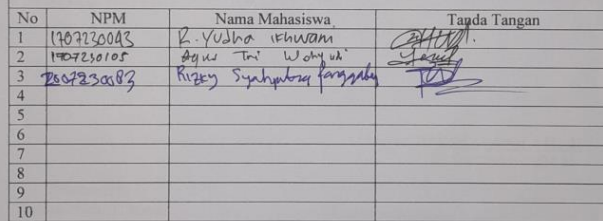 No NPM Nama Mahasiswa Tanda Tangan
1 1707230043 R. Yudha Ikhwam
2 1707230105 Agus Tri Wahyudi
3 2007230083 Rizky
4
5
6
7
8
9
10